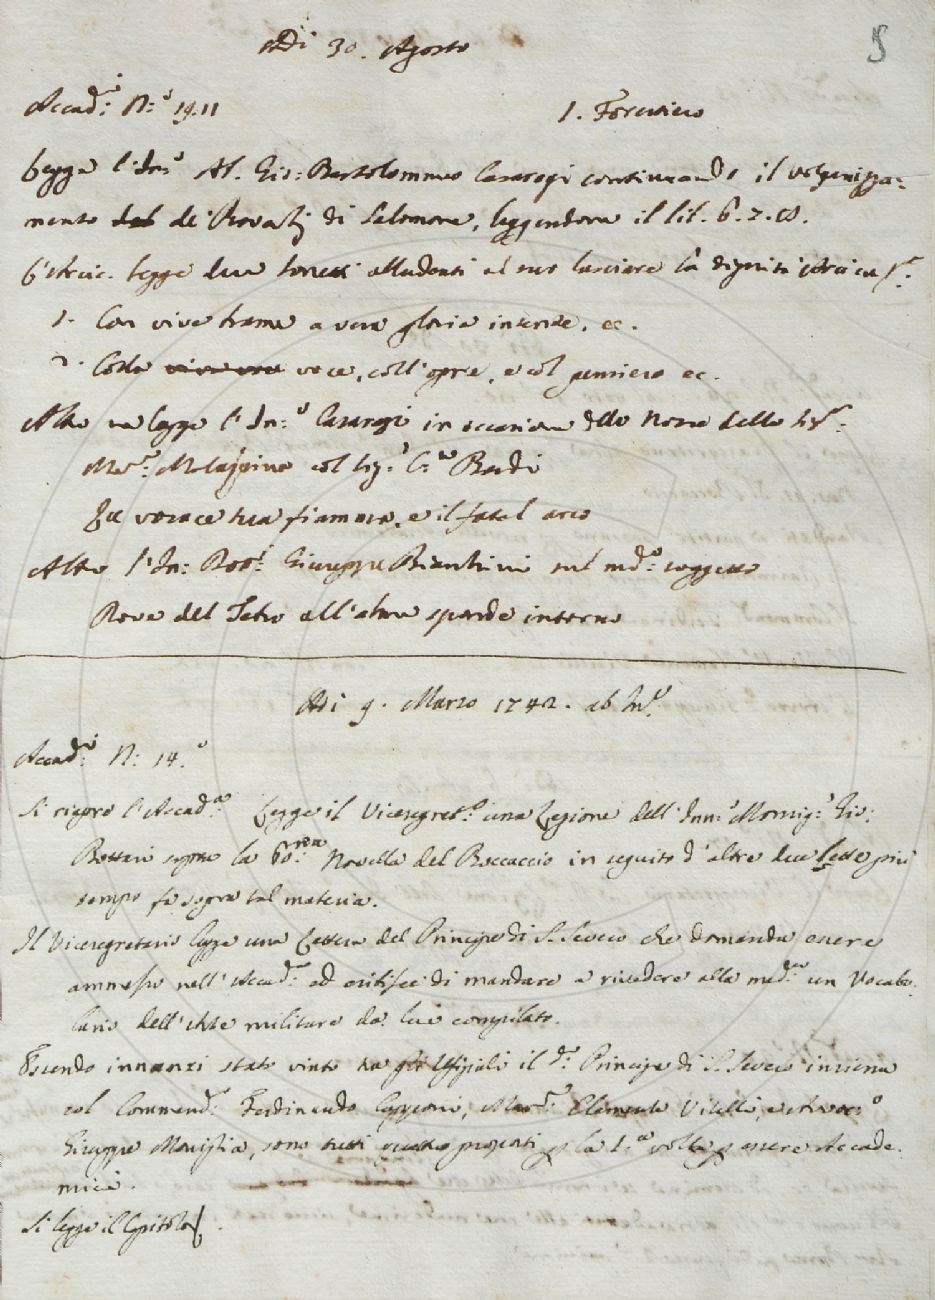 Adi 30. Agosto
5
Accad.i N.o 19. 11
1. Forestiero
Legge l'Inn.o Ab. Gio: Bartolommeo Casaregi continuando il volgarizza=
mento del de' Proverbj di Salomone, leggendone il lib. 6. 7. 8.
L'Arcic. legge due Sonetti alludenti al suo lasciare la dignità
1. Con vive trame a vera gloria intende. ec.
2. Colla viva voce voce, coll'opre, e col pensiero ec.
Altro ne legge l'Inn.o Casaregi in occasione delle Nozze dello
Mar. Malaspina col Sig. C. Bardi
La vorace tua fiamma, e il fatal arco
Altro l'Inn: Dot. Giuseppe Bianchini sul md.o soggetto
Rose del Tebro all'alme sponde intorno
Adi 9. Marzo 1742. ab Inc.
Accad.i N: 14.o
Si riapre l'Accad.a Legge il Vicesegret.o una Lezione dell'Inn.o Monsig.r Gio:
Bottari sopra la Novella del Boccaccio in seguito d'altre due Lette più
tempo fa sopra tal materia.
Il Vicesegretario legge una Lettera del Principe di S. Severo che domanda essere
ammesso nell'Accad.a ed esibisce di mandare a rivedere alla med.a un Vocabo=
lario dell'Arte militare da lui compilato.
Essendo innanzi stato vinto tra gli Ufiziali il d.o Principe di S. Severo insieme
col Commend.r Ferdinando Capponi, Mar. Clemente Vitelli, e
Giuseppe Maniglia, sono tutti quattro proposti p la 1.a volta p essere Accade=
mici.
Si legge il Capitolo.